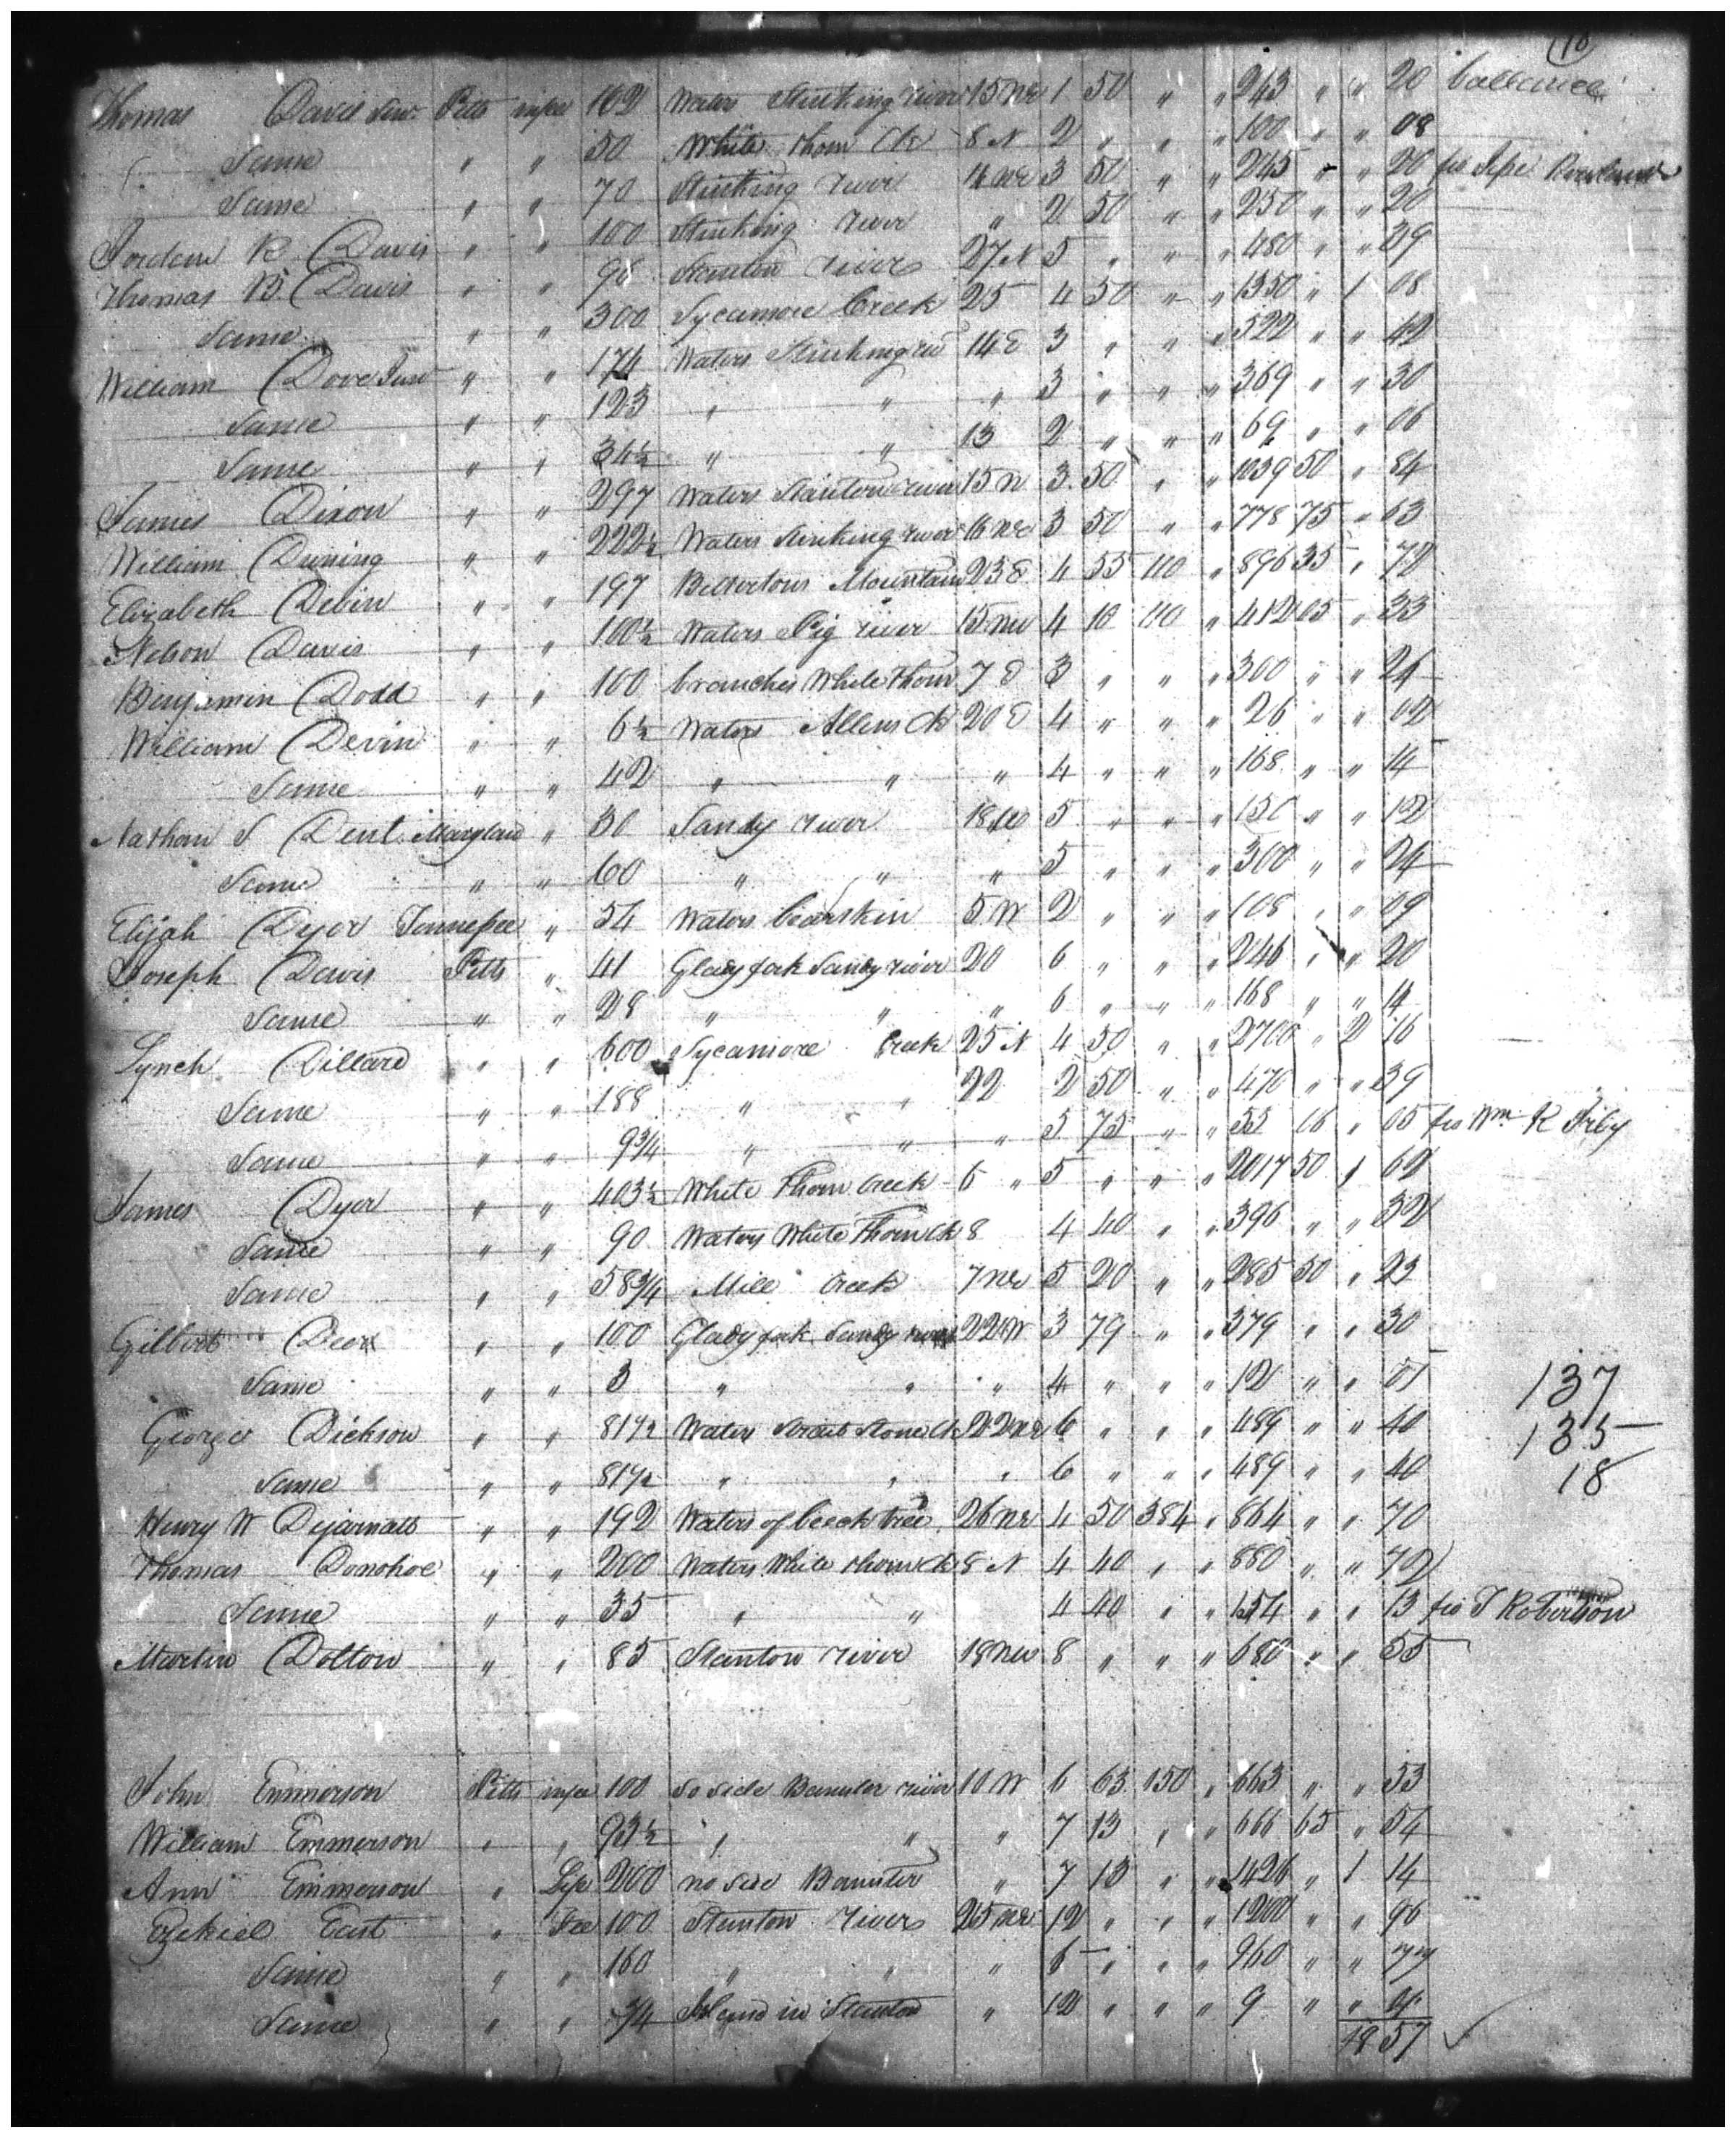 18
Thomas Davis Senr Pitts infee 162 Waters Stinking river 15 NE 1 50 " " 243 " " 20 ballance
Same " " 50 White thorn Ck 8 N 2 " " " 100 " " 08
Same " " 70 Stinking river 11 NE 3 50 " " 245 " " 20 fro
Jordan R Davis " " 100 Stinking river " 2 50 " " 250 " " 20
Thomas B Davis " " 96 Stanton river 27 N 5 " " " 480 " " 39
Same " " 300 Sycamore Creek 25 4 50 " " 1350 " 1 08
William Dove Junr " " 174 Waters Stinking riv 14 E 3 " " " 522 " " 42
Same " " 123 " " " 3 " " " 369 " " 30
Same " " 34½ " " 13 2 " " " 69 " " 06
James Dixon " " 297 Waters Stanton river 15 N 3 50 " " 1039 50 " 84
William Duning " " 222½ Waters Stinking river 16 NE 3 50 " " 778 75 " 63
Elizabeth Devin " " 197 Mountain 23 E 4 55 110 " 896 35 " 72
Nelson Davis " " 100½ Waters Pig river 15 NW 4 10 110 " 412 05 " 33
Benjamin Dodd " " 100 branches White Thorn 7 E 3 " " " 300 " " 24
William Devin " " 6½ Waters Allens Ck 20 E 4 " " " 26 " " 02
Same " " 42 " " " 4 " " " 168 " " 14
Nathan S Dent Maryland " 30 Sandy river 18 W 5 " " " 150 " " 12
Same " " 60 " " " 5 " " " 300 " " 24
Elijah Dyer Tennessee " 54 Waters bearskin 5 W 2 " " " 108 " " 09
Joseph Davis Pitts " 41 Glady fork Sandy river 20 6 " " " 246 " " 20
Same " " 28 " " " 6 " " " 168 " " 14
Lynch Dillard " " 600 Sycamore Creek 25 N 4 50 " " 2700 " 2 16
Same " " 188 " " 22 2 50 " " 470 " " 39
Same " " 9¾ " " " 5 75 " " 55 16 " 05 fro Wm R
James Dyer " " 403½ White Thorn Creek 6 " 5 " " " 2017 50 1 62
Same " " 90 Waters White Thorn Ck 8 4 40 " " 396 " " 32
Same " " 58¾ Mill Creek 7 NE 5 20 " " 285 50 " 23
Gilbert Deer " " 100 Glady fork Sandy river 22 W 3 79 " " 379 " " 30
Same " " 3 " " " 4 " " " 12 " " 01
137
George Dickson " " 81½ Waters Straitstone Ck 22 NE 6 " " " 489 " " 40
135
Same " " 81½ " " " 6 " " " 489 " " 40
18
Henry W Dejarnatt " " 192 Waters of beech tree 26 NE 4 50 384 " 864 " " 70
Thomas Donohoe " " 200 Waters White thorn Ck 8 N 4 40 " " 880 " " 72
Same " " 35 " " 4 40 " " 154 " " 13 fro T Robertson
Martin Dolton " " 85 Stanton river 18 NW 8 " " " 680 " " 55
John Emmerson Pitts infee 100 So side Banister river 10 W 6 63 150 " 663 " " 53
William Emmerson " " 93½ " " " 7 13 " " 666 65 " 54
Ann Emmerson " Life 200 no side Banister " 7 13 " " 1426 " 1 14
Ezekiel East " Fee 100 Stanton river 25 NE 12 " " " 1200 " " 96
Same " " 160 " " " 6 " " " 960 " " 77
Same " " ¾ Island in Stanton " 12 " " " 9 " "
48 57